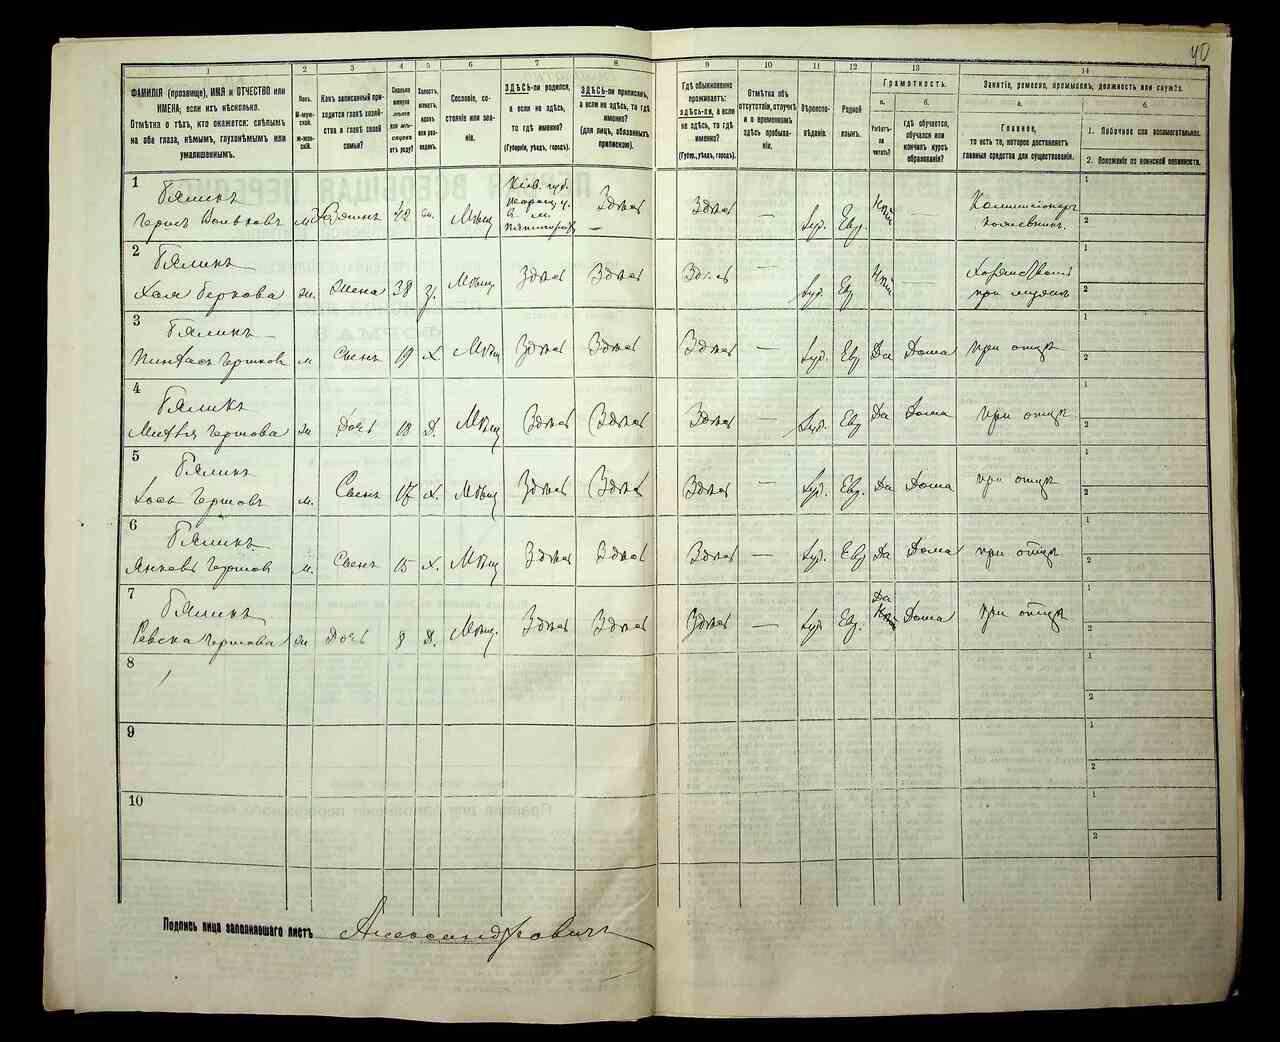 40
1
2
3
4
5
6
7
8
9
10
11
12
13
14
ФАМИЛІЯ (прозвище), ИМЯ и ОТЧЕСТВО или
ИМЕНА, если ихъ нѣсколько.
Отмѣтка о тѣхъ, кто окажется: слѣпымъ
на оба глаза, нѣмымъ, глухонѣмымъ или
умалишеннымъ.
Полъ.
М-муж-
ской.
Ж-жен-
скій.
Какъ записанный при-
ходится главѣ хозяй-
ства и главѣ своей
семьи?
Сколько
минуло
лѣтъ
или мѣ-
сяцевъ
отъ роду?
Холостъ,
женатъ,
вдовъ
или раз-
веденъ.
Сословіе, со-
стояніе или зва-
ніе.
ЗДѢСЬ-ли родился,
а если не здѣсь,
то гдѣ именно?
(Губернія, уѣздъ, городъ).
ЗДѢСЬ-ли приписанъ,
а если не здѣсь, то гдѣ
именно?
(для лицъ, обязанныхъ
припискою).
Гдѣ обыкновенно
проживаетъ:
ЗДѢСЬ-ли, а если
не здѣсь, то гдѣ
именно?
(Губ., уѣздъ, городъ).
Отмѣтка объ
отсутствіи, отлучкѣ
и о временномъ
здѣсь пребыва-
ніи.
Вѣроиспо-
вѣданіе.
Родной
языкъ.
Грамотность.
а.
Умѣетъ-
ли
читать?
б.
гдѣ обучается,
обучался или
кончилъ курсъ
образованія?
Занятіе, ремесло, промыселъ, должность или служба.
а.
Главное,
то есть то, которое доставляетъ
главныя средства для существованія.
б.
1. Побочное или вспомогательное.
2. Положеніе по воинской повинности.
1
Бяликъ
м
42
Мѣщ
Кіев. губ.
Здѣсь
Здѣсь
—
Іуд.
Евр.
Коммисіонер
1
2
2
Бяликъ
Хая Беркова
ж.
Жена
38
З.
Мѣщ.
Здѣсь
Здѣсь
Здѣсь
—
Іуд.
Евр
при мужѣ
1
2
3
Бяликъ
Пинхасъ Гершковъ
м
Сынъ
19
Х
Мѣщ
Здѣсь
Здѣсь
Здѣсь
—
Іуд.
Евр
Да
Дома
при отцѣ
1
2
4
Бяликъ
Гершова
ж
Дочь
18
Д.
Мѣщ
Здѣсь
Здѣсь
Здѣсь
—
Іуд.
Евр
Да
Дома
при отцѣ
1
2
5
Бяликъ
Гершовъ
м.
Сынъ
17
Х.
Мѣщ
Здѣсь
Здѣсь
Здѣсь
—
Іуд.
Евр.
Да
Дома
при отцѣ
1
2
6
Бяликъ
Янкевъ Гершов
м.
Сынъ
15
Х.
Мѣщ
Здѣсь
Здѣсь
Здѣсь
—
Іуд.
Евр
Да
Дома
при отцѣ
1
2
7
Бяликъ
Ревека Гершова
ж
Дочь
9
Д.
Мѣщ.
Здѣсь
Здѣсь
Здѣсь
—
Іуд
Евр.
Да
Дома
при отцѣ
1
2
8
1
2
9
1
2
10
1
2
Подпись лица заполнявшаго листъ
Александровичъ